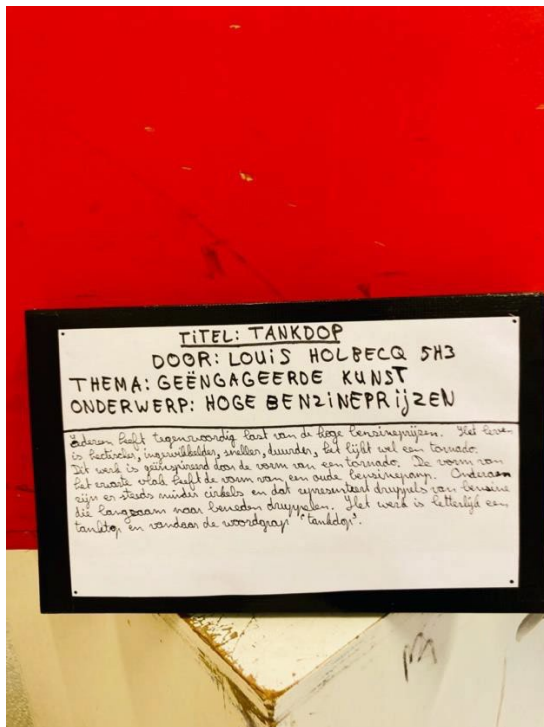 TiTEL: TANKDOP
DOOR: LOUiS HOLBECQ 5H3
THEMA: GEËNGAGEERDE KUNST
ONDERWERP: HOGE BENZiNEPRijZEN
Iedereen heeft tegenwoordig last van de hoge bensineprijzen. Het leven
is hectischer, ingewikkelder, sneller, duurder, het lijkt wel een tornado.
Dit werk is geïnspireerd door de vorm van een tornado. De vorm van
het zwarte vlak heeft de vorm van een oude bensinepomp. Onderaan
zijn er steeds minder cirkels en dat representeert druppels van bensine
die langzaam naar beneden druppelen. Het werk is letterlijk een
tankdop en vandaar de woordgrap "tankdop".